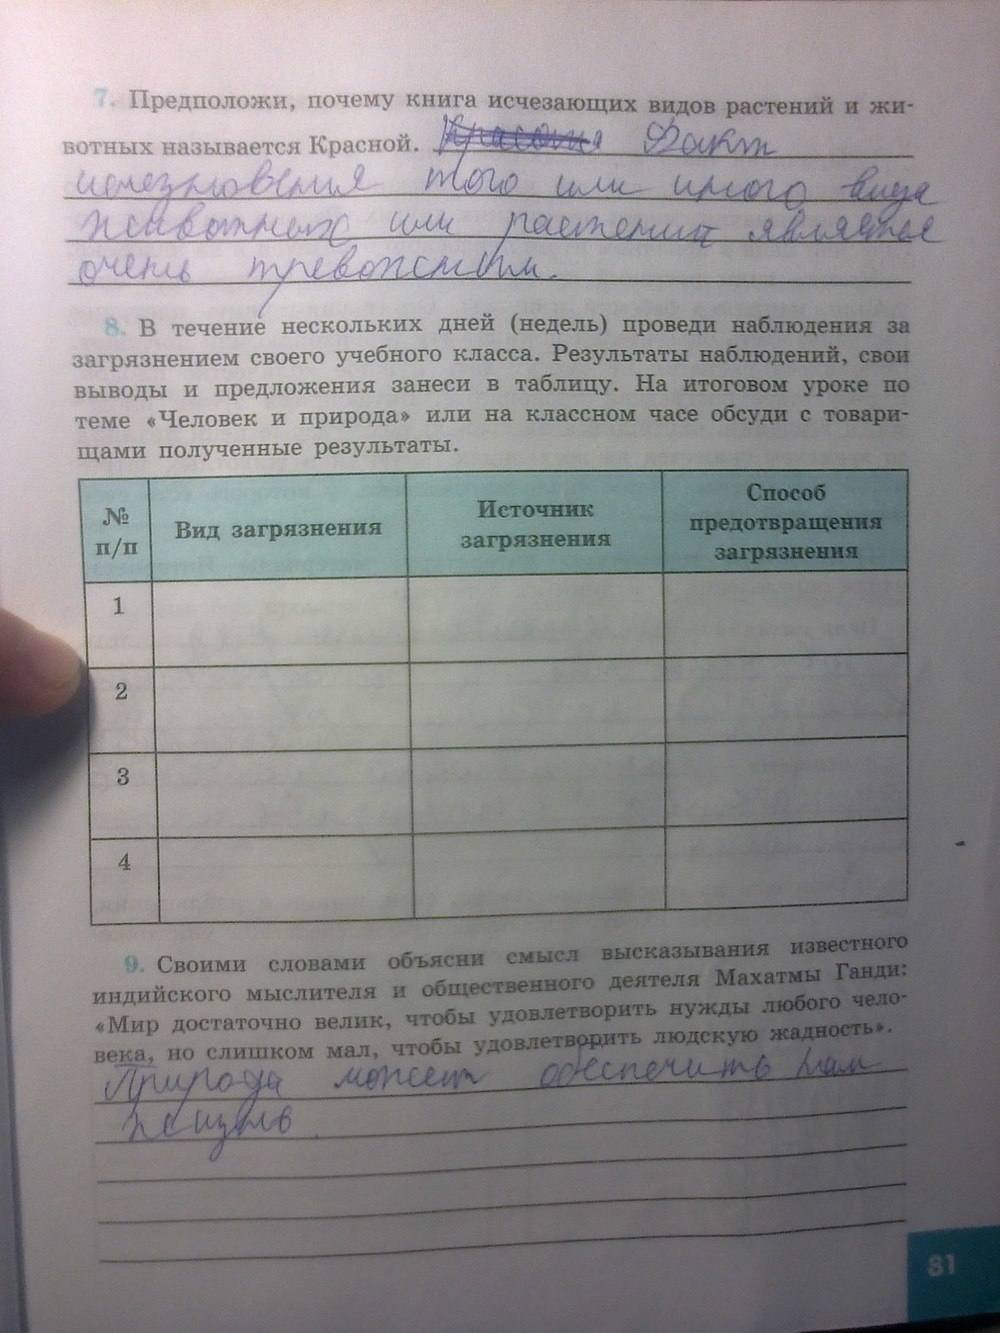 7. Предположи, почему книга исчезающих видов растений и жи-
вотных называется Красной. Факт
исчезновения того или иного вида
животных или растений является
очень тревожным.
8. В течение нескольких дней (недель) проведи наблюдения за
загрязнением своего учебного класса. Результаты наблюдений, свои
выводы и предложения занеси в таблицу. На итоговом уроке по
теме «Человек и природа» или на классном часе обсуди с товари-
щами полученные результаты.
№
п/п
Вид загрязнения
Источник
загрязнения
Способ
предотвращения
загрязнения
1
2
3
4
9. Своими словами объясни смысл высказывания известного
индийского мыслителя и общественного деятеля Махатмы Ганди:
«Мир достаточно велик, чтобы удовлетворить нужды любого чело-
века, но слишком мал, чтобы удовлетворить людскую жадность».
Природа может обеспечить нам
жизнь.
81